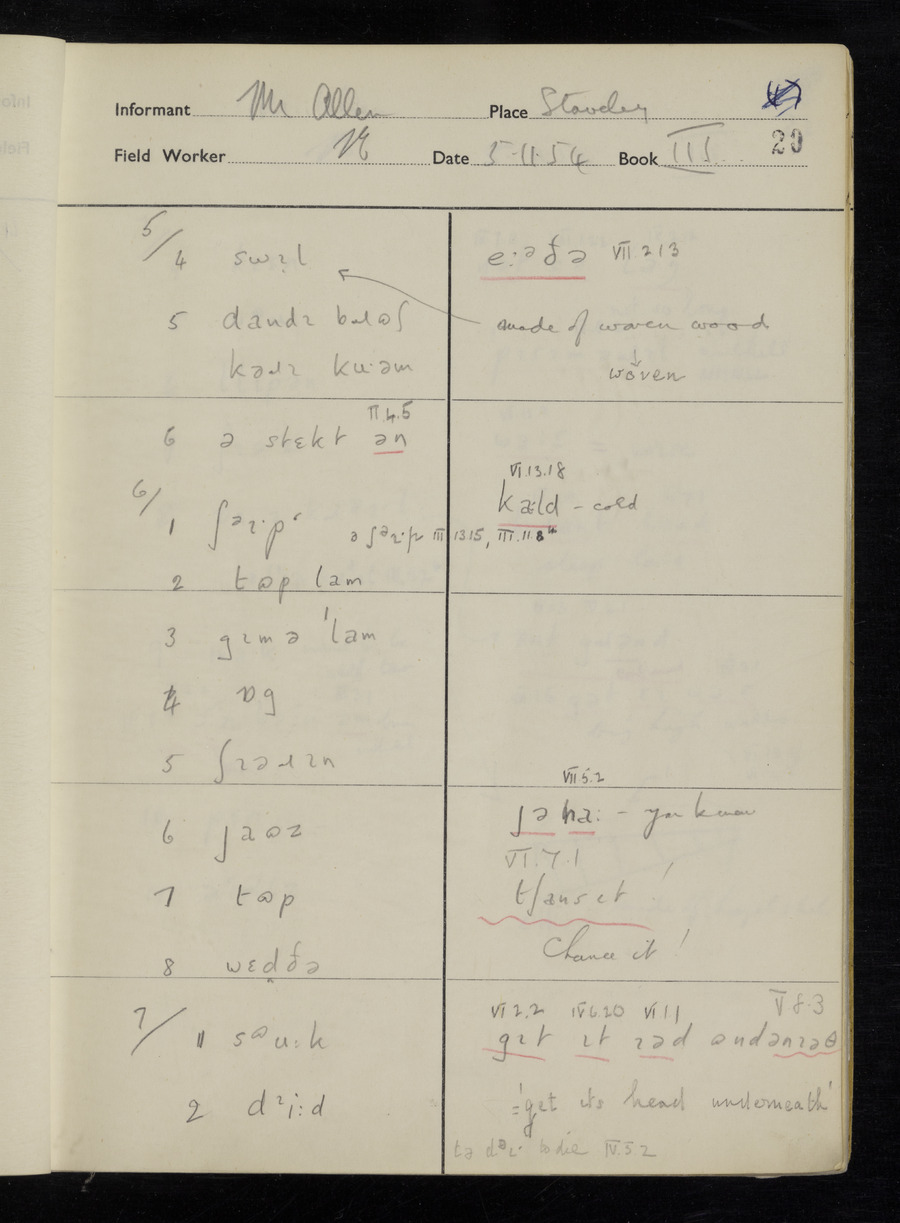 Informant Mr Allen Place Stoveley
Field Worker Date 5-11-54 Book III 20
5/4 swɪl
5 dandɪ bɹɷʃ
kəɹɪ ku·əm
e:ᵊðə VII 2 13
made of woven wood
↓
wöven
II.4.5
6 ə stɛkt ən
6/1 ʃᵊɪ·pʻ ə ʃᵊɪ·p III 13 15, III.11 8
2 tɷp lam
VI.13.18
kæ:ld – cold
3 gɪmə ˈlam
4 ɒg
5 ʃɪəɹɪn
6 jaɷz
7 tɷp
8 wɛd̪ðə
VII 5.2
jə na: – you know
VI.7.1
tʃans ɪt !
Chance it !
7/1 sᶷu:k
2 dᶦi:d
VI 2.2 IV 6.20 VI 1 1 V 8.3
gɪt ɪt ɪəd ɷndənɪəθ
= 'get its head underneath'
tə dəɪ· to die IV.5 2